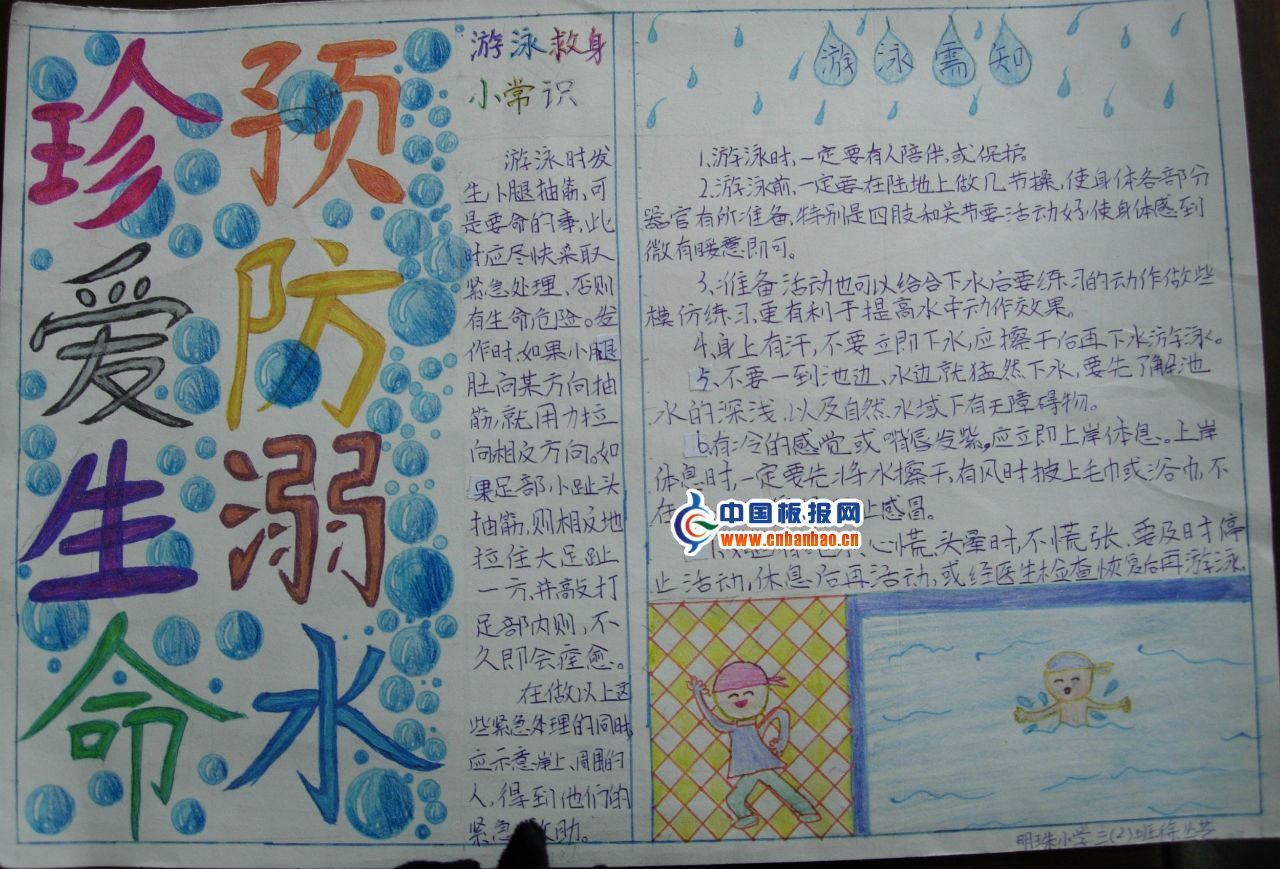 珍爱生命
预防溺水
游泳救身
小常识
游泳时发
生小腿抽筋,可
是要命的事,此
时应尽快采取
紧急处理、否则
有生命危险。发
作时,如果小腿
肚向某方向抽
筋,就用力拉
向相反方向。如
果足部小趾头
抽筋,则相反地
拉住大足趾
一方,并敲打
足部内则,不
久即会痊愈。
在做以上这
些紧急处理的同时,
应示意岸上、周围的
人,得到他们的
紧急 助。
游泳需知
1、游泳时,一定要有人陪伴,或保护。
2、游泳前,一定要在陆地上做几节操,使身体各部分
器官有所准备,特别是四肢和关节要活动好,使身体感到
微有暖意即可。
3、准备活动也可以给合下水后要练习的动作做些
模仿练习,更有利于提高水中动作效果。
4、身上有汗,不要立即下水,应擦干后再下水游泳。
5、不要一到池边、水边就猛然下水,要先了解池
水的深浅,以及自然水域下有无障碍物。
6、有冷的感觉或嘴唇发紫,应立即上岸休息。上岸
休息时,一定要先将水擦干,有风时披上毛巾或浴巾,不
在 上感冒。
心慌、头晕时,不慌张,要及时停
止活动,休息后再活动,或经医生检查恢复后再游泳。
中国板报网
www.cnbanbao.cn
明珠小学三(2)班徐